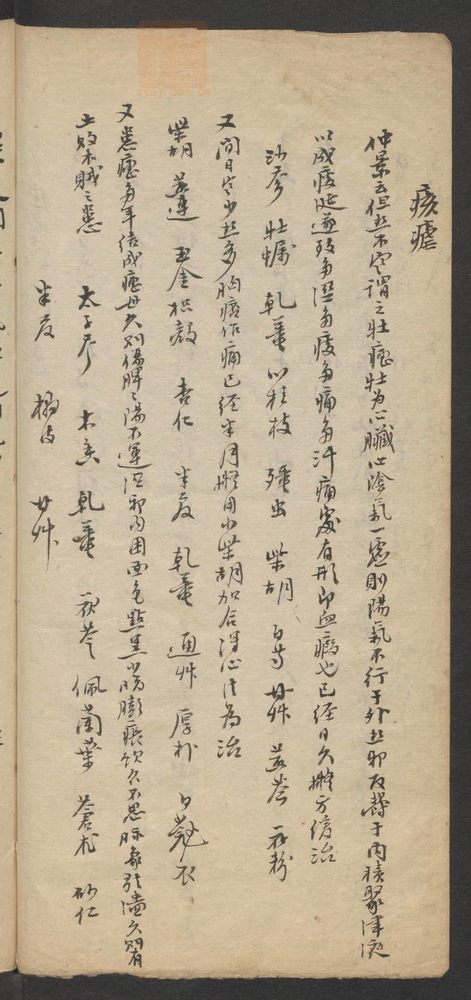 痎瘧
仲景云但熱不寒謂之牡瘧牡為心臟心陰氣一虛則陽氣不行于外熱邪反鬱于內積聚津液
以成痰延邃致多濕多痰多痛多汗痛處有形即血瘕也已經日久擬方緩治
沙參 牡蠣 乾薑 川桂枝 蟅虫 柴胡 白芍 甘艸 黃芩 花粉
又間日寒少熱多胸痞作痛已經半月擬用小柴胡加合瀉心法為治
柴胡 黃連 丑金 枳殼 杏仁 半夏 乾薑 通艸 厚朴 白蔻衣
又患瘧多年倍成瘧母久則傷脾脾陽不運濕邪內困面色黧黑少腹膨脹飲久不思脈象弦濡久防有
土敗木賊之患 太子參 木香 乾薑 茯苓 佩蘭葉 蒼朮 砂仁
半夏 甘艸